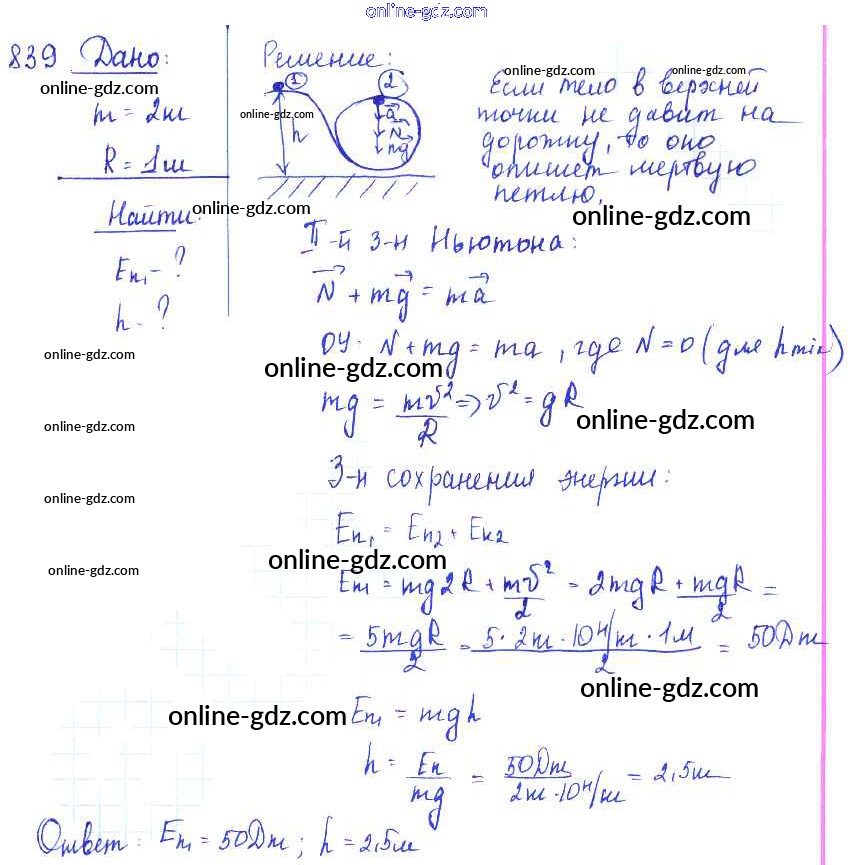 online-gdz.com
839 Дано:
online-gdz.com
m = 2кг
R = 1м
Найти:
Eп₁ - ?
h - ?
Решение:
1 2
online-gdz.com
h
a⃗
N⃗
mg⃗
online-gdz.com
Если тело в верхней
online-gdz.com
точки не давит на
дорожку, то оно
опишет мертвую
петлю.
online-gdz.com
online-gdz.com
II-й З-н Ньютона:
N⃗ + mg⃗ = ma⃗
OY: N + mg = ma, где N = 0 (для h min)
online-gdz.com
online-gdz.com
mg = mv²/R ⇒ v² = gR
online-gdz.com
online-gdz.com
З-н сохранения энергии:
online-gdz.com
Eп₁ = Eп₂ + Eк₂
online-gdz.com
online-gdz.com
Eп₁ = mg2R + mv²/2 = 2mgR + mgR/2 =
= 5mgR/2 = 5·2кг·10Н/кг·1м/2 = 50Дж
online-gdz.com
online-gdz.com
Eп₁ = mgh
h = Eп/mg = 50Дж/2кг·10Н/кг = 2,5м
Ответ: Eп₁ = 50Дж; h = 2,5м